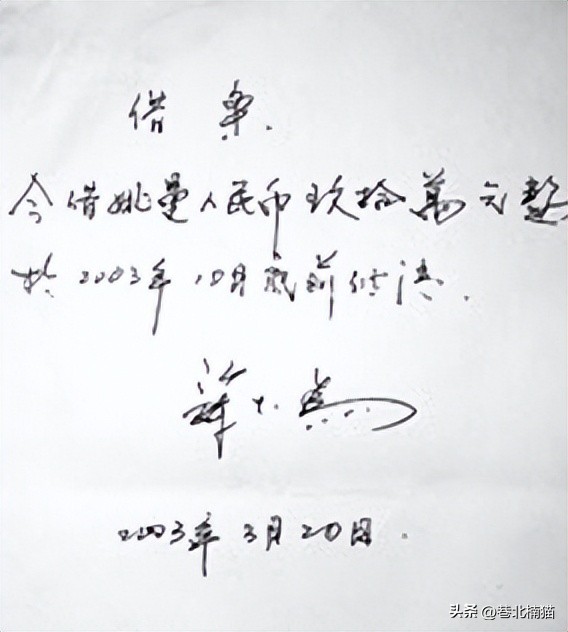 借
今借姚曼人民币玖拾萬元整
於2003年10月底前付清.
蒋大為
2003年3月20日.
头条 @巷北楠猫